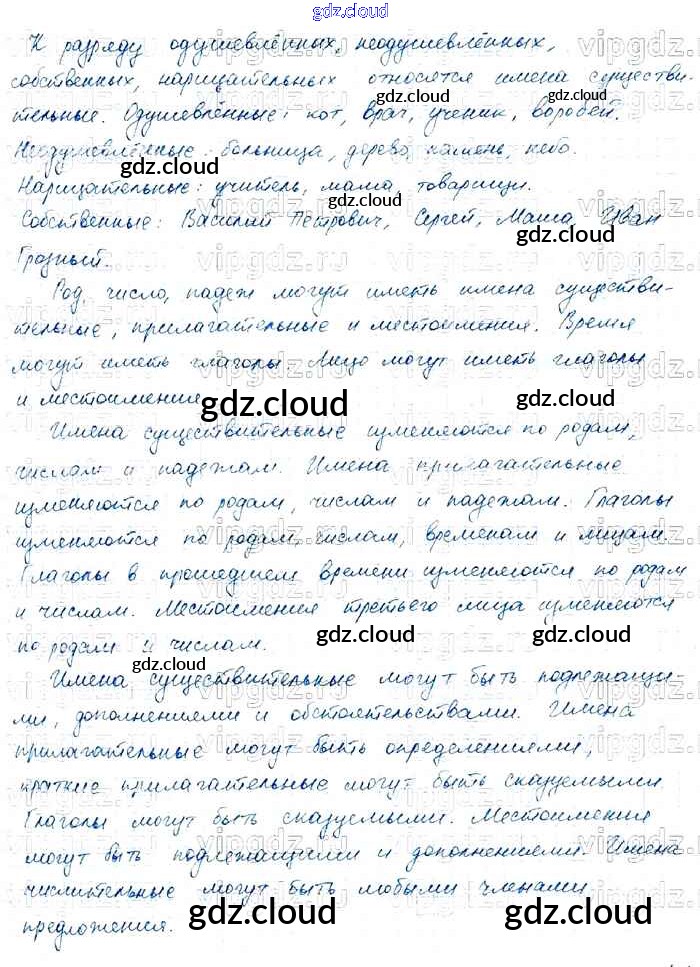 gdz.cloud
К разряду одушевлённых, неодушевлённых,
собственных, нарицательных относятся имена существи-
тельные. Одушевлённые: кот, врач, ученик, воробей.
Неодушевлённые: больница, дерево, камень, небо.
Нарицательные: учитель, мама, товарищи.
Собственные: Василий Петрович, Сергей, Маша, Иван
Грозный.
Род, число, падеж могут иметь имена существи-
тельные, прилагательные и местоимения. Время
могут иметь глаголы. Лицо могут иметь глаголы
и местоимение
Имена существительные изменяются по родам,
числам и падежам. Имена прилагательные
изменяются по родам, числам и падежам. Глаголы
изменяются по родам, числам, временам и лицам.
Глаголы в прошедшем времени изменяются по родам
и числам. Местоимения третьего лица изменяются
по родам и числам.
Имена существительные могут быть подлежащи-
ми, дополнениями и обстоятельствами. Имена
прилагательные могут быть определениями,
краткие прилагательные могут быть сказуемыми.
Глаголы могут быть сказуемыми. Местоимения
могут быть подлежащими и дополнениями. Имена
числительные могут быть любыми членами
предложения.